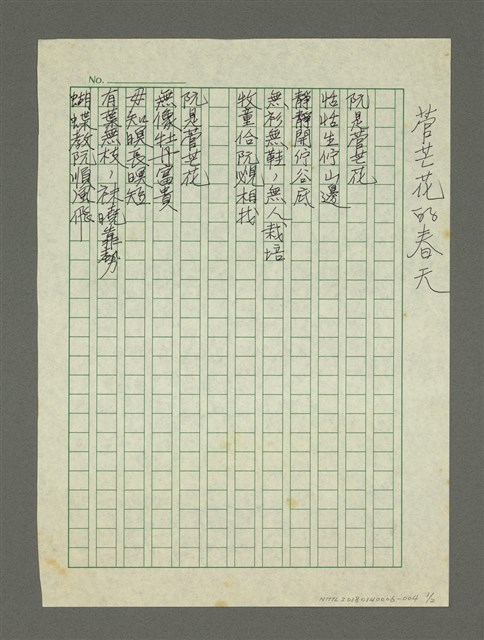 菅芒花的春天
No.
阮是菅芒花
恬恬生佇山邊
靜靜開佇谷底
無衫無鞋，無人栽培
牧童佮阮覕相找
阮是菅芒花
無像牡丹富貴
毋知暝長暝短
有葉無枝，袂曉靠勢
蝴蝶教阮順風飛
NMTL20180140006-004 1/2